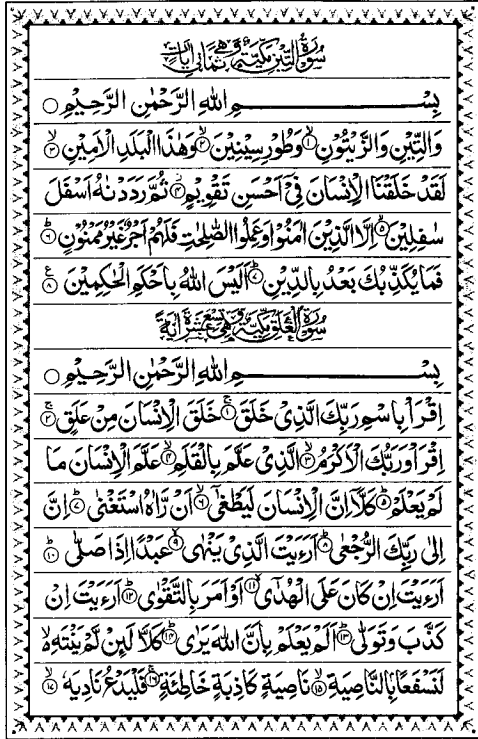 سُوْرَةُ التِّيْنِ مَكِّيَّةٌ وَّهِيَ ثَمَانِيْ اٰيَاتٍ
بِسْمِ اللهِ الرَّحْمٰنِ الرَّحِيْمِ ○
وَالتِّيْنِ وَالزَّيْتُوْنِ ۙ﴿۱﴾ وَطُوْرِ سِيْنِيْنَ ۙ﴿۲﴾ وَهٰذَا الْبَلَدِ الْاَمِيْنِ ۙ﴿۳﴾
لَقَدْ خَلَقْنَا الْاِنْسَانَ فِيْۤ اَحْسَنِ تَقْوِيْمٍ ۙ﴿۴﴾ ثُمَّ رَدَدْنٰهُ اَسْفَلَ
سٰفِلِيْنَ ۙ﴿۵﴾ اِلَّا الَّذِيْنَ اٰمَنُوْا وَعَمِلُوا الصّٰلِحٰتِ فَلَهُمْ اَجْرٌ غَيْرُ مَمْنُوْنٍ ؕ﴿۶﴾
فَمَا يُكَذِّبُكَ بَعْدُ بِالدِّيْنِ ؕ﴿۷﴾ اَلَيْسَ اللهُ بِاَحْكَمِ الْحٰكِمِيْنَ ﴿۸﴾ ع
سُوْرَةُ الْعَلَقِ مَكِّيَّةٌ وَّهِيَ تِسْعَ عَشَرَةَ اٰيَةً
بِسْمِ اللهِ الرَّحْمٰنِ الرَّحِيْمِ ○
اِقْرَاْ بِاسْمِ رَبِّكَ الَّذِيْ خَلَقَ ۚ﴿۱﴾ خَلَقَ الْاِنْسَانَ مِنْ عَلَقٍ ۚ﴿۲﴾
اِقْرَاْ وَرَبُّكَ الْاَكْرَمُ ۙ﴿۳﴾ الَّذِيْ عَلَّمَ بِالْقَلَمِ ۙ﴿۴﴾ عَلَّمَ الْاِنْسَانَ مَا
لَمْ يَعْلَمْ ؕ﴿۵﴾ كَلَّاۤ اِنَّ الْاِنْسَانَ لَيَطْغٰۤى ۙ﴿۶﴾ اَنْ رَّاٰهُ اسْتَغْنٰى ؕ﴿۷﴾ اِنَّ
اِلٰى رَبِّكَ الرُّجْعٰى ؕ﴿۸﴾ اَرَءَيْتَ الَّذِيْ يَنْهٰى ۙ﴿۹﴾ عَبْدًا اِذَا صَلّٰى ؕ﴿۱۰﴾
اَرَءَيْتَ اِنْ كَانَ عَلَى الْهُدٰۤى ۙ﴿۱۱﴾ اَوْ اَمَرَ بِالتَّقْوٰى ؕ﴿۱۲﴾ اَرَءَيْتَ اِنْ
كَذَّبَ وَتَوَلّٰى ؕ﴿۱۳﴾ اَلَمْ يَعْلَمْ بِاَنَّ اللهَ يَرٰى ؕ﴿۱۴﴾ كَلَّا لَئِنْ لَّمْ يَنْتَهِ ۙ۬
لَنَسْفَعًۢا بِالنَّاصِيَةِ ۙ﴿۱۵﴾ نَاصِيَةٍ كَاذِبَةٍ خَاطِئَةٍ ۚ﴿۱۶﴾ فَلْيَدْعُ نَادِيَهٗ ۙ﴿۱۷﴾